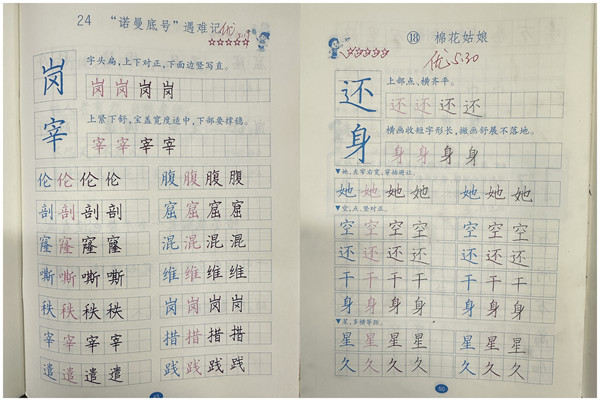 24 “诺曼底号”遇难记 优
字头扁,上下对正,下面边竖写直。
岗 岗 岗 岗 岗
上紧下舒,宝盖宽度适中,下部要撑稳。
宰 宰 宰 宰 宰
伦 伦 伦 伦 腹 腹 腹 腹
剖 剖 剖 剖 窟 窟 窟 窟
窿 窿 窿 窿 混 混 混 混
嘶 嘶 嘶 嘶 维 维 维 维
秩 秩 秩 秩 岗 岗 岗 岗
宰 宰 宰 宰 措 措 措 措
遣 遣 遣 遣 践 践 践 践
⑱ 棉花姑娘
优 5.30
上部点、横齐平。
还 还 还 还 还
横画收短字形长,撇画舒展不落地。
身 身 身 身 身
▼她,左窄右宽,穿插避让。
她 她 她 她 她 她 她 她
▼空,点、竖对正。
空 空 空 空 空 空 空
还 还 还 还 还 还 还
干 干 干 干 干 干 干
身 身 身 身 身 身 身
▼星,多横等距。
星 星 星 星 星 星 星
久 久 久 久 久 久 久
50